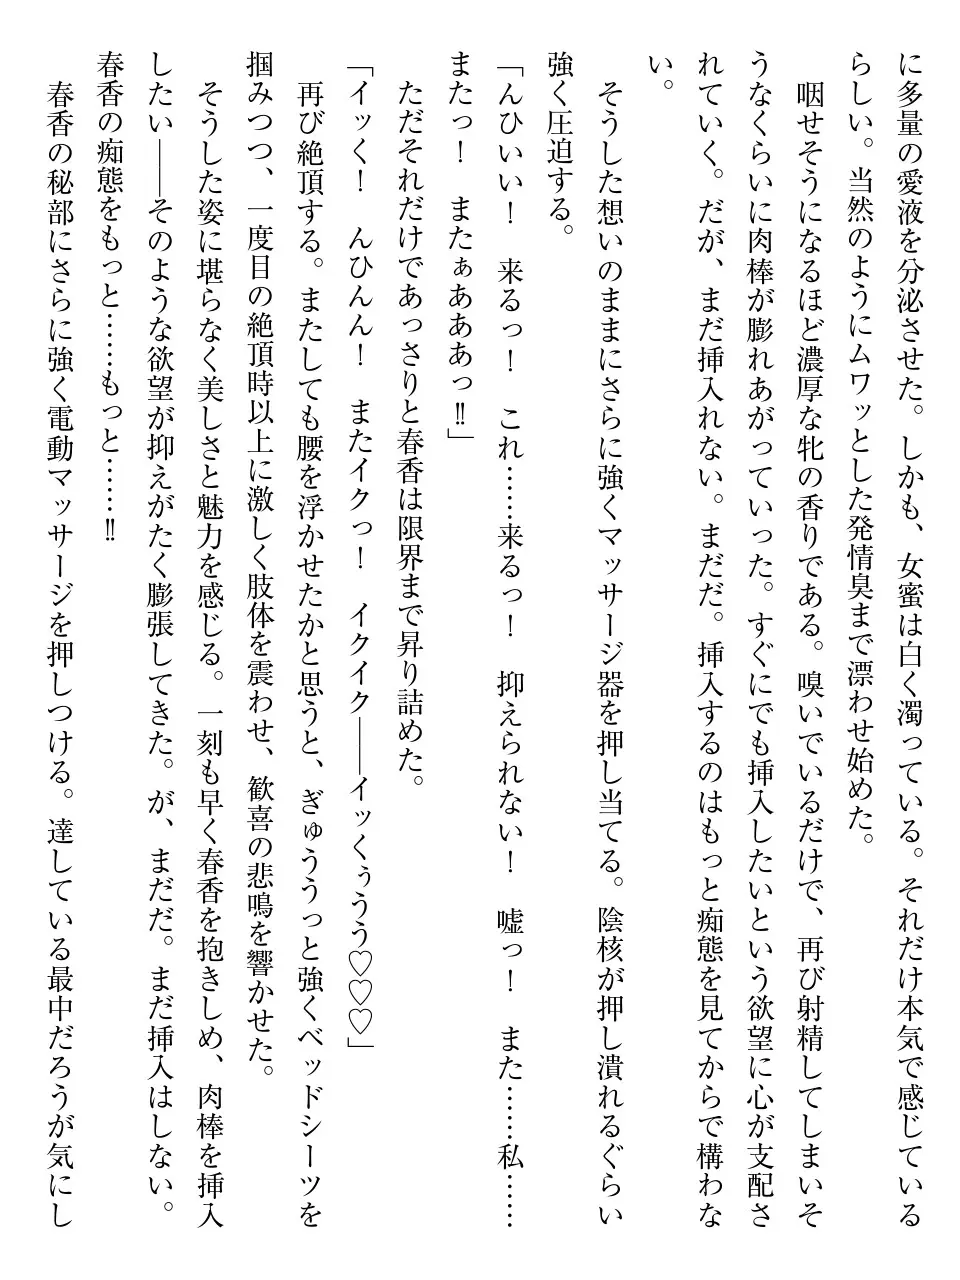 に多量の愛液を分泌させた。しかも、女蜜は白く濁っている。それだけ本気で感じている
らしい。当然のようにムワッとした発情臭まで漂わせ始めた。
　咽せそうになるほど濃厚な牝の香りである。嗅いでいるだけで、再び射精してしまいそ
うなくらいに肉棒が膨れあがっていった。すぐにでも挿入したいという欲望に心が支配さ
れていく。だが、まだ挿入れない。まだだ。挿入するのはもっと痴態を見てからで構わな
い。
　そうした想いのままにさらに強くマッサージ器を押し当てる。陰核が押し潰れるぐらい
強く圧迫する。
「んひいい！　来るっ！　これ……来るっ！　抑えられない！　嘘っ！　また……私……
またっ！　またぁあああっ‼」
　ただそれだけであっさりと春香は限界まで昇り詰めた。
「イッく！　んひんん！　またイクっ！　イクイク――イッくぅうう♡♡♡」
　再び絶頂する。またしても腰を浮かせたかと思うと、ぎゅううっと強くベッドシーツを
掴みつつ、一度目の絶頂時以上に激しく肢体を震わせ、歓喜の悲鳴を響かせた。
　そうした姿に堪らなく美しさと魅力を感じる。一刻も早く春香を抱きしめ、肉棒を挿入
したい――そのような欲望が抑えがたく膨張してきた。が、まだだ。まだ挿入はしない。
春香の痴態をもっと……もっと……‼
　春香の秘部にさらに強く電動マッサージを押しつける。達している最中だろうが気にし